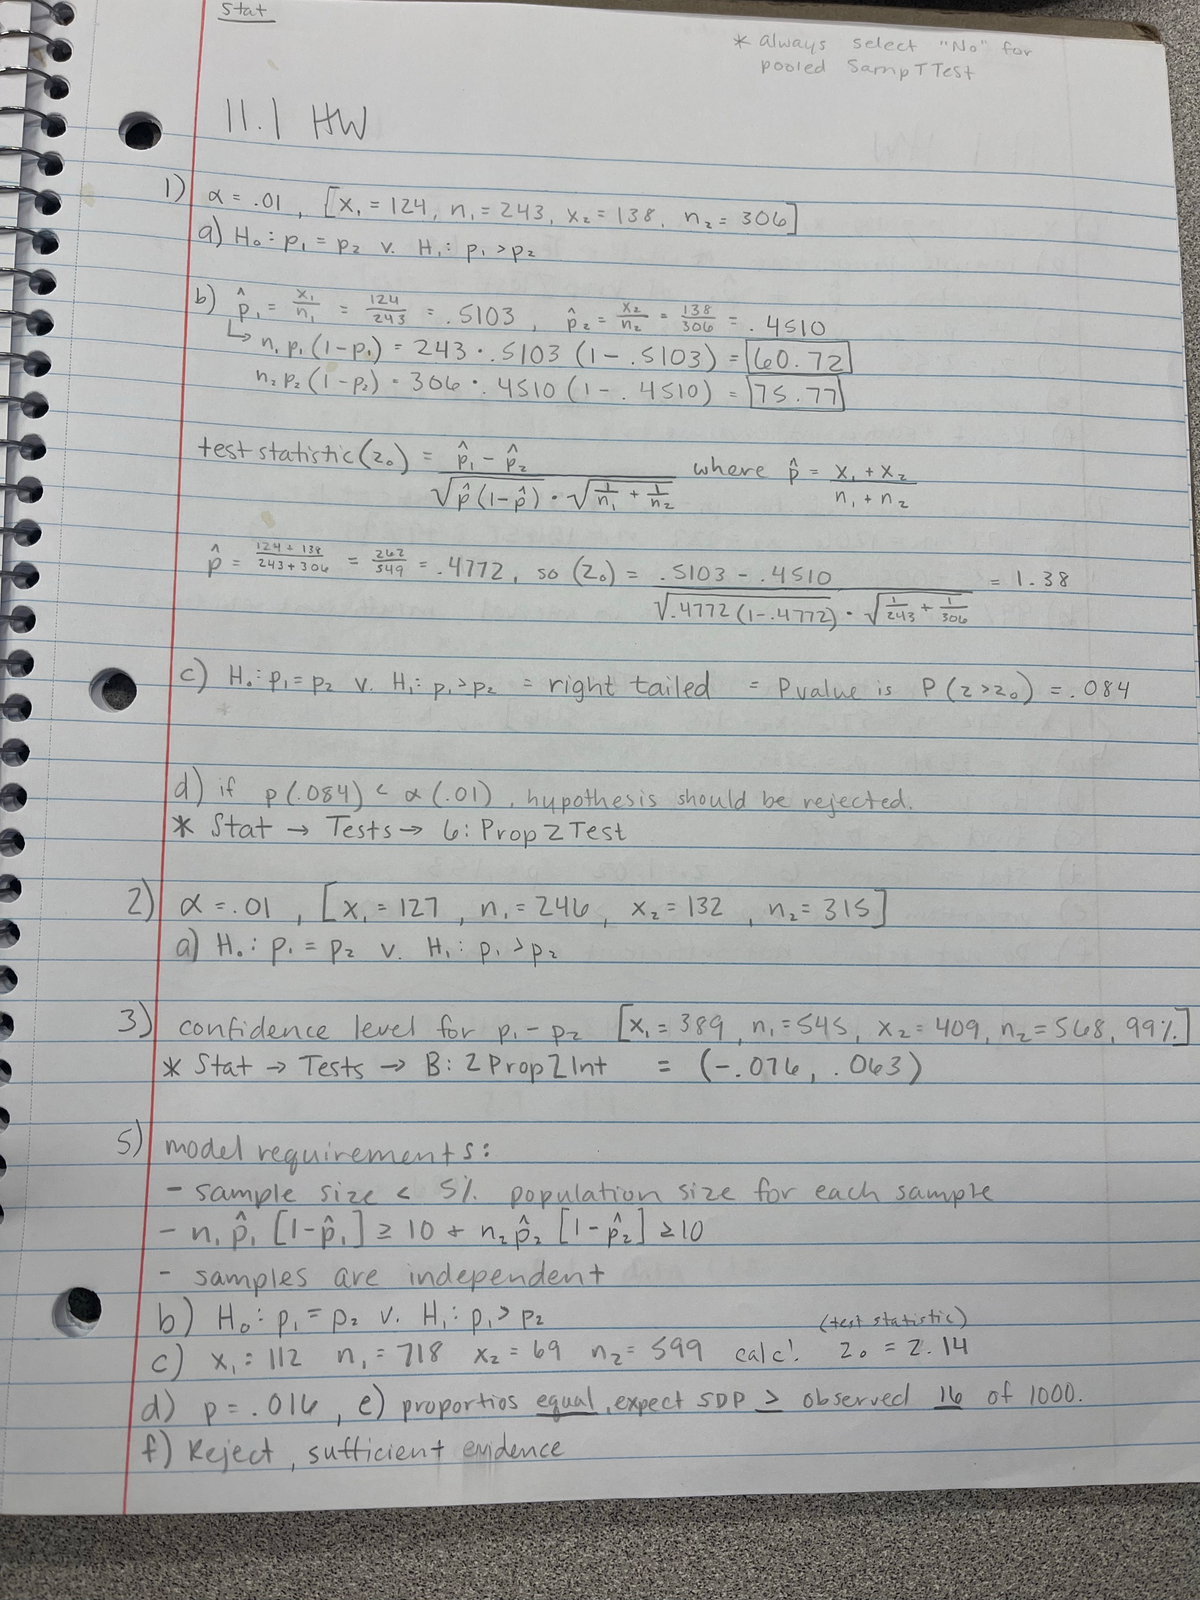 Stat
* always select "No" for
pooled SampTTest
11.1 HW
1) α = .01, [x₁ = 124, n₁ = 243, x₂ = 138, n₂ = 306]
a) H₀: p₁ = p₂ v. H₁: p₁ > p₂
b) p̂₁ = x₁/n₁ = 124/243 = .5103, p̂₂ = x₂/n₂ = 138/306 = .4510
↳ n₁p₁(1-p₁) = 243 · .5103 (1 - .5103) = 60.72
n₂p₂(1-p₂) = 306 · .4510 (1 - .4510) = 75.77
test statistic (z₀) = p̂₁ - p̂₂ / √p̂(1-p̂) · √1/n₁ + 1/n₂ where p̂ = x₁ + x₂ / n₁ + n₂
p̂ = 124 + 138 / 243 + 306 = 262/549 = .4772, so (z₀) = .5103 - .4510 / √.4772(1-.4772) · √1/243 + 1/306 = 1.38
c) H₀: p₁ = p₂ v. H₁: p₁ > p₂ = right tailed = P value is P(z > z₀) = .084
d) if p(.084) < α(.01), hypothesis should be rejected.
* Stat → Tests → 6: Prop Z Test
2) α = .01, [x₁ = 127, n₁ = 246, x₂ = 132, n₂ = 315]
a) H₀: p₁ = p₂ v. H₁: p₁ > p₂
3) confidence level for p₁ - p₂ [x₁ = 389, n₁ = 545, x₂ = 409, n₂ = 568, 99%]
* Stat → Tests → B: 2 Prop Z Int = (-.076, .063)
5) model requirements:
- sample size < 5% population size for each sample
- n₁p̂₁[1-p̂₁] ≥ 10 + n₂p̂₂[1-p̂₂] ≥ 10
- samples are independent
b) H₀: p₁ = p₂ v. H₁: p₁ > p₂
c) x₁ = 112 n₁ = 718 x₂ = 69 n₂ = 599 calc! (test statistic) z₀ = 2.14
d) p = .016, e) proportios equal, expect SDP ≥ observed 16 of 1000.
f) Reject, sufficient evidence